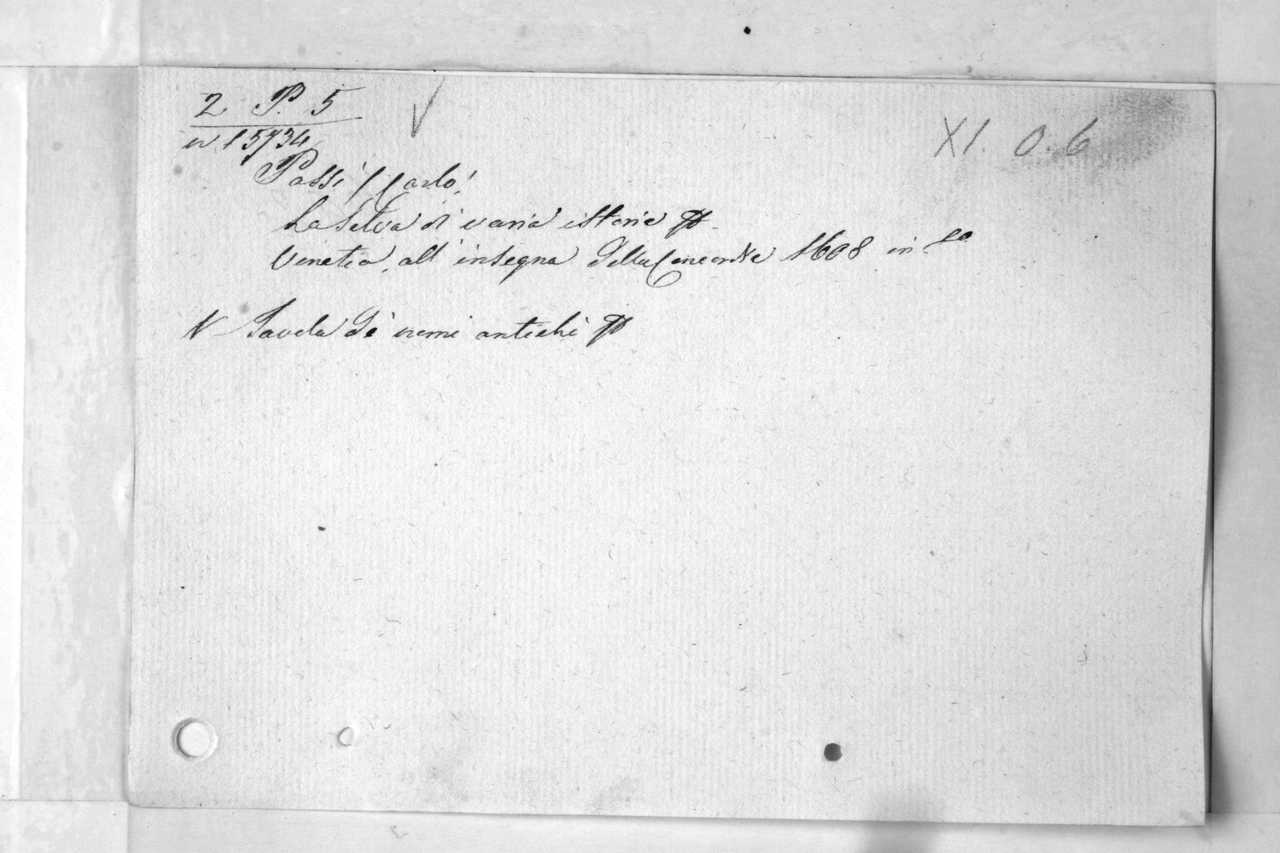 2 P. 5
XI. O. 6
n 15734
Passi (Carlo)
La Selva di varia istoria
Venetia, all' insegna della Concordia 1608 in
V Tavola de nomi antichi